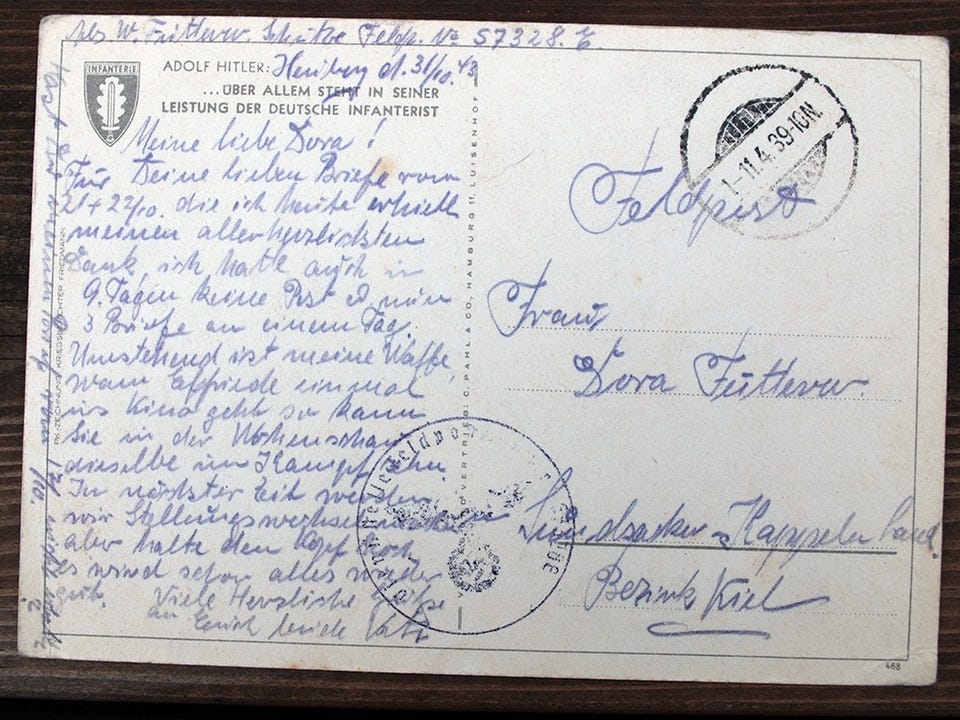 Abs W. Futterer. Schütze Feldp. № 57328. E
INFANTERIE
ADOLF HITLER:
d. 31/10. 43
...ÜBER ALLEM STEHT IN SEINER
LEISTUNG DER DEUTSCHE INFANTERIST
Meine liebe Dora!
Für Deine lieben Briefe vom
21 + 22/10. die ich heute erhielt
meinen allerherzlichsten
Dank, ich hatte auch in
9. Tagen keine Post nun
3 Briefe an einem Tag.
Umstehend ist meine Waffe,
wann einmal
ins Kino geht so kann
Sie in der Wochenschau
dieselbe im Kampf sehn.
In nächster Zeit werden
wir Stellungswechsel
aber halte den Kopf hoch
es wird schon alles wieder
gut. Viele Herzliche Grüße
an beide
17/10.
PK-ZEICHNUNG: KRIEGSBERICHTER FRIEDMANN
VERTRIEB: C. PAHL & CO., HAMBURG 11, LUISENHOF
-11.4.39-10N.
Feldpost
Frau
Dora Futterer
Kappeln Land
Bezirk Kiel
468